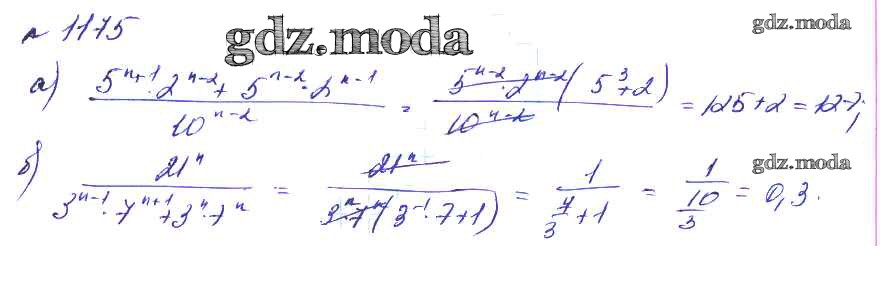 № 1175
gdz.moda
gdz.moda
а) (5^(n+1)·2^(n-2) + 5^(n-2)·2^(n-1))/10^(n-2) = 5^(n-2)·2^(n-2)(5^3+2)/10^(n-2) = 125+2 = 127;
gdz.moda
б) 21^n/(3^(n-1)·7^(n+1)+3^n·7^n) = 21^n/(3^n·7^n(3^(-1)·7+1)) = 1/(7/3+1) = 1/(10/3) = 0,3.